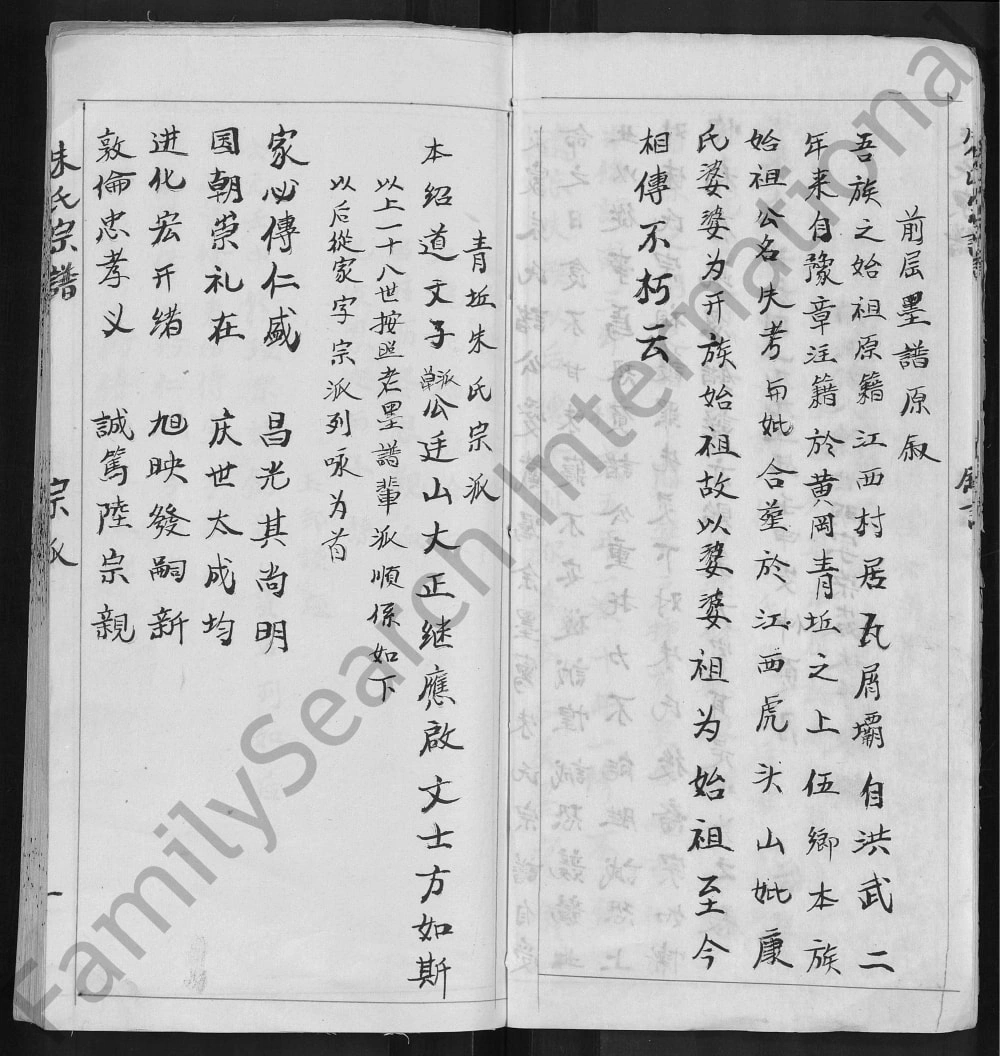 前屈墨譜原叙
吾族之始祖原籍江西村居瓦屑壩自洪武二
年来自豫章注籍於黄岡青坵之上伍鄉本族
始祖公名失考与妣合塟於江西虎头山妣康
氏婆婆为开族始祖故以婆婆祖为始祖至今
相傳不朽云
青坵朱氏宗派
本绍道文子派公廷山大正继應啟文士方如斯
以上一十八世按照老墨譜輩派順係如下
以后從家字宗派列咏为首
家必傳仁盛 昌光其尚明
国朝崇礼在 庆世太成均
进化宏开绪 旭映發嗣新
敦倫忠孝义 誠篤陸宗親
朱氏宗譜 宗派 一
FamilySearch International